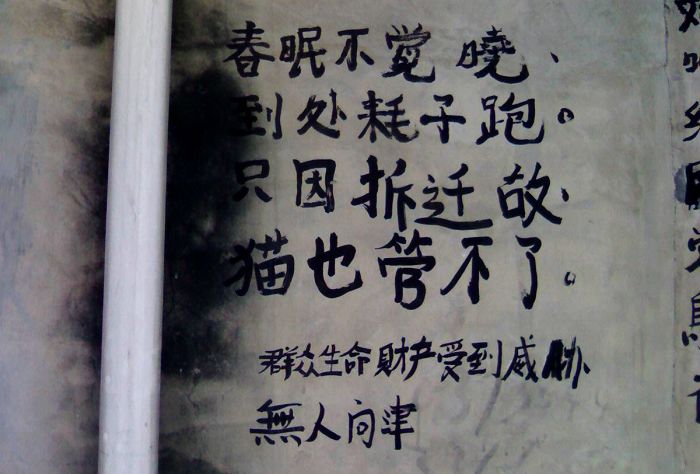 春眠不觉曉、
到处耗子跑。
只因拆迁故、
猫也管不了。
群众生命财产受到威胁
無人问津